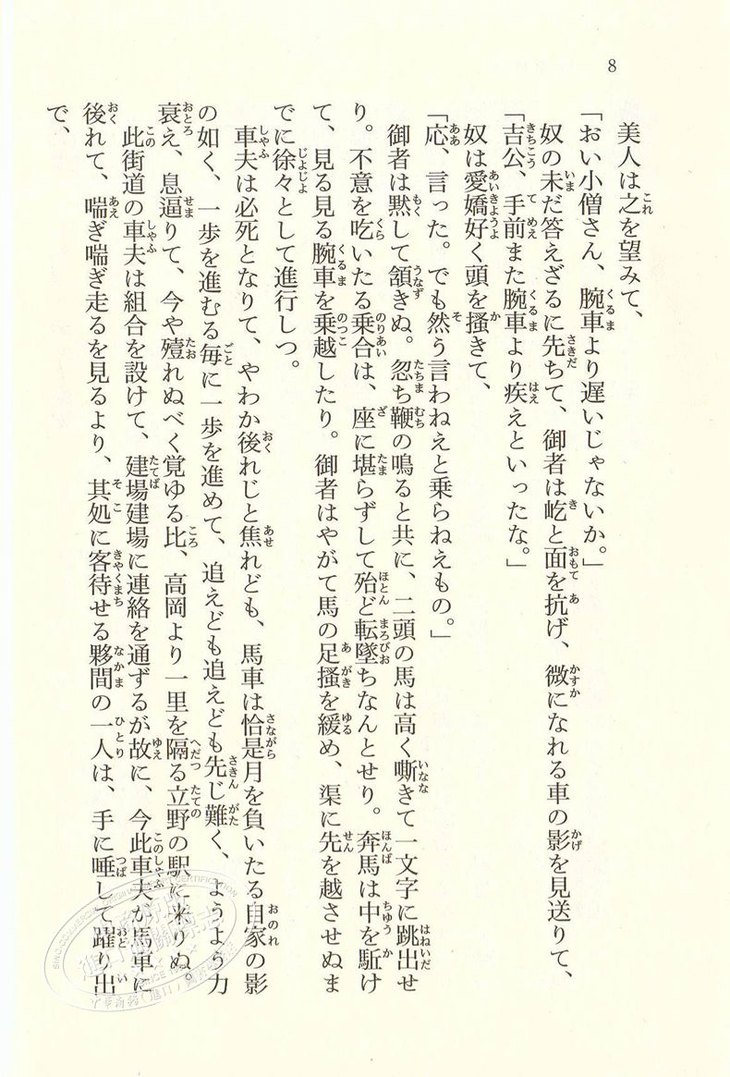 8
美人は之を望みて、
「おい小僧さん、腕車より遅いじゃないか。」
奴の未だ答えざるに先ちて、御者は屹と面を抗げ、微になれる車の影を見送りて、
「吉公、手前また腕車より疾えといったな。」
奴は愛嬌好く頭を掻きて、
「応、言った。でも然う言わねえと乗らねえもの。」
御者は黙して頷きぬ。忽ち鞭の鳴ると共に、二頭の馬は高く嘶きて一文字に跳出せ
り。不意を吃いたる乗合は、座に堪らずして殆ど転墜ちなんとせり。奔馬は中を駈け
て、見る見る腕車を乗越したり。御者はやがて馬の足掻を緩め、渠に先を越させぬま
でに徐々として進行しつ。
車夫は必死となりて、やわか後れじと焦れども、馬車は恰是月を負いたる自家の影
の如く、一歩を進むる毎に一歩を進めて、追えども追えども先じ難く、ようよう力
衰え、息逼りて、今や殪れぬべく覚ゆる比、高岡より一里を隔る立野の駅に来りぬ。
此街道の車夫は組合を設けて、建場建場に連絡を通ずるが故に、今此車夫が馬車に
後れて、喘ぎ喘ぎ走るを見るより、其処に客待せる夥間の一人は、手に唾して躍り出
で、